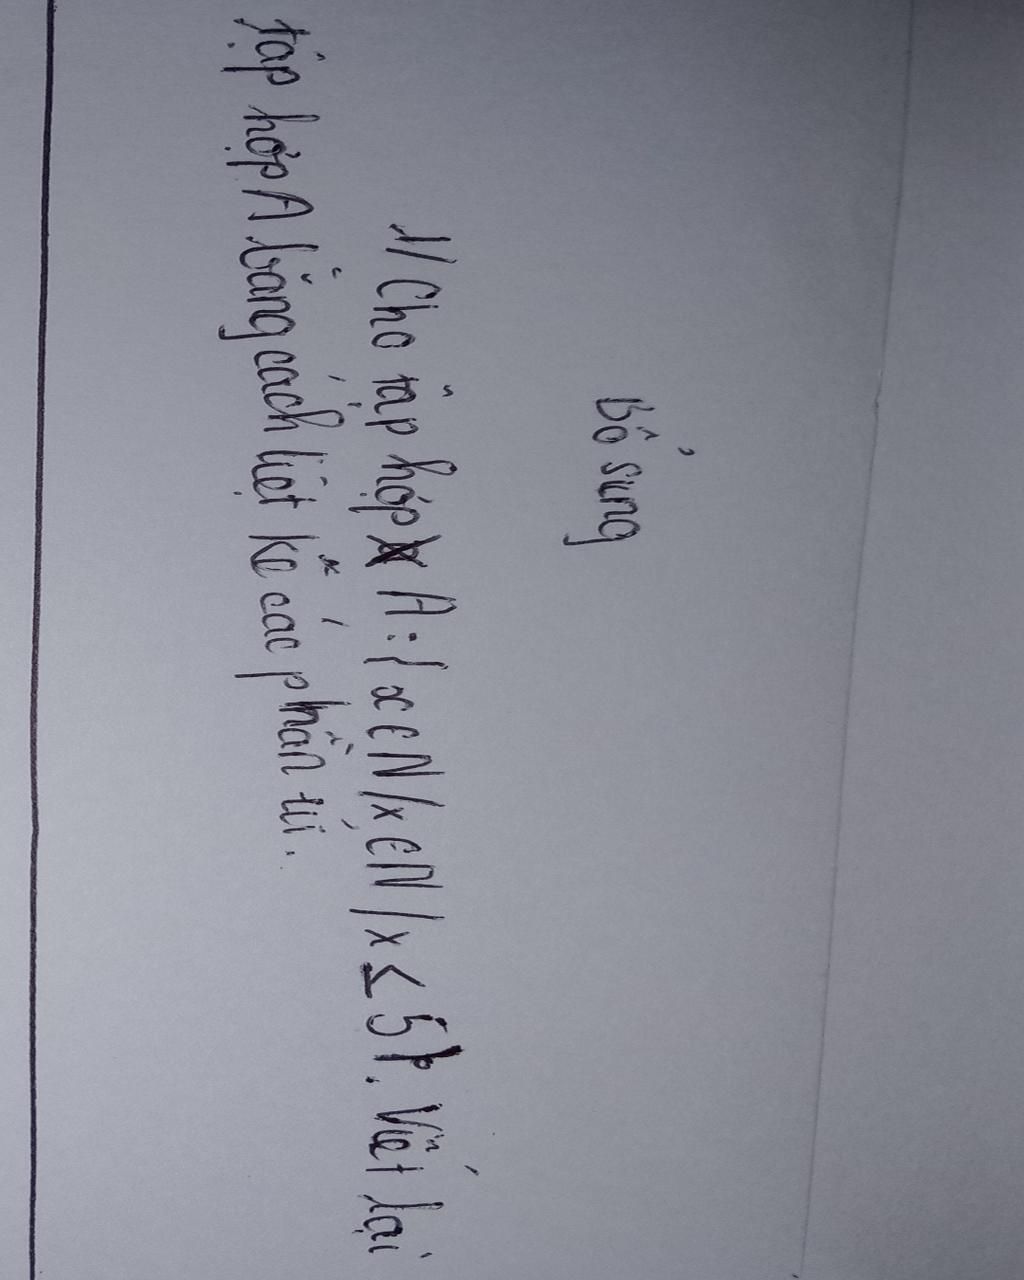 Bổ sung
1// Cho tập hợp A: {x ∈ N / x ∈ N / x ≤ 5}. Viết lại
tập hợp A bằng cách liệt kê các phần tử.